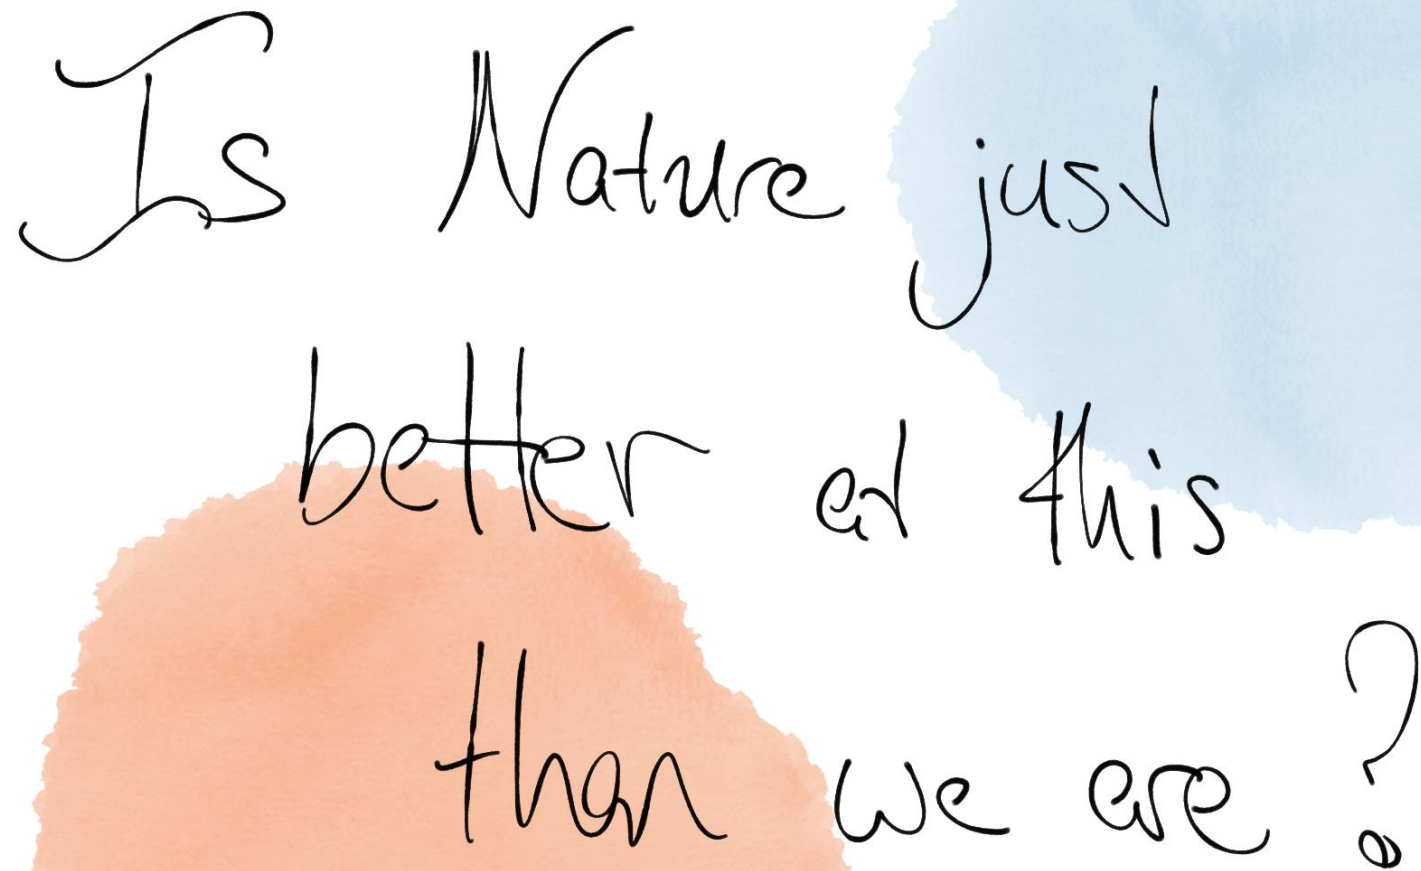 Is Nature just
better at this
than we are?